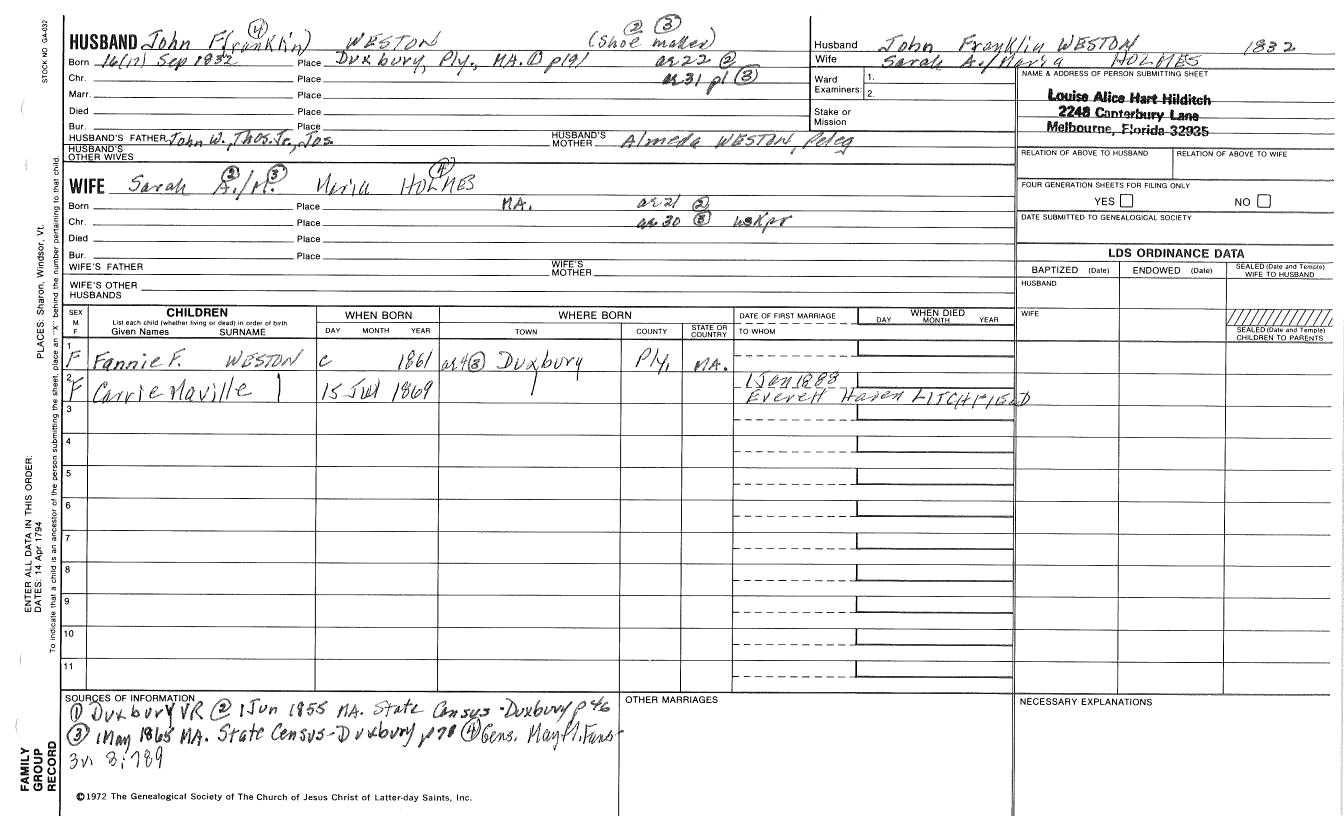 STOCK NO. GA-032
HUSBAND John F(ranklin) ④ WESTON (Shoe maker) ② ③
Born 16(17) Sep 1832 Place Duxbury, Ply., MA. ① p191 ae 22 ②
Chr. Place ae 31 pl ③
Marr. Place
Died Place
Bur. Place
HUSBAND'S FATHER John W., Thos. Jr., Jos. HUSBAND'S MOTHER Almeda WESTON, Peleg
HUSBAND'S OTHER WIVES
WIFE Sarah A./M. ② ③ Maria HOLMES ④
Born Place MA. ae 21 ②
Chr. Place ae 30 ③ hskpr
Died Place
Bur. Place
WIFE'S FATHER WIFE'S MOTHER
WIFE'S OTHER HUSBANDS
Husband John Franklin WESTON 1832
Wife Sarah A./Maria HOLMES
Ward Examiners: 1. 2.
Stake or Mission
NAME & ADDRESS OF PERSON SUBMITTING SHEET
Louise Alice Hart Hilditch
2248 Canterbury Lane
Melbourne, Florida 32935
RELATION OF ABOVE TO HUSBAND RELATION OF ABOVE TO WIFE
FOUR GENERATION SHEETS FOR FILING ONLY
YES NO
DATE SUBMITTED TO GENEALOGICAL SOCIETY
LDS ORDINANCE DATA
BAPTIZED (Date) ENDOWED (Date) SEALED (Date and Temple) WIFE TO HUSBAND
HUSBAND
WIFE
SEALED (Date and Temple) CHILDREN TO PARENTS
SEX M. F. CHILDREN WHEN BORN WHERE BORN DATE OF FIRST MARRIAGE WHEN DIED
List each child (whether living or dead) in order of birth
Given Names SURNAME DAY MONTH YEAR TOWN COUNTY STATE OR COUNTRY TO WHOM DAY MONTH YEAR
1 F Fannie F. WESTON c 1861 ae 4 ③ Duxbury Ply. MA.
2 F Carrie Maville 15 Jul 1869 1 Jan 1888
Everett Haven LITCHFIELD
3
4
5
6
7
8
9
10
11
SOURCES OF INFORMATION
① Duxbury VR ② 1 Jun 1855 MA. State Census - Duxbury p 46
③ 1 May 1865 MA. State Census - Duxbury p78 ④ Gens. Mayfl. Fams
3v. 3:789
OTHER MARRIAGES
NECESSARY EXPLANATIONS
©1972 The Genealogical Society of The Church of Jesus Christ of Latter-day Saints, Inc.
PLACES: Sharon, Windsor, Vt.
To indicate that a child is an ancestor of the person submitting the sheet, place an "X" behind the number pertaining to that child.
ENTER ALL DATA IN THIS ORDER:
DATES: 14 Apr 1794
FAMILY GROUP RECORD